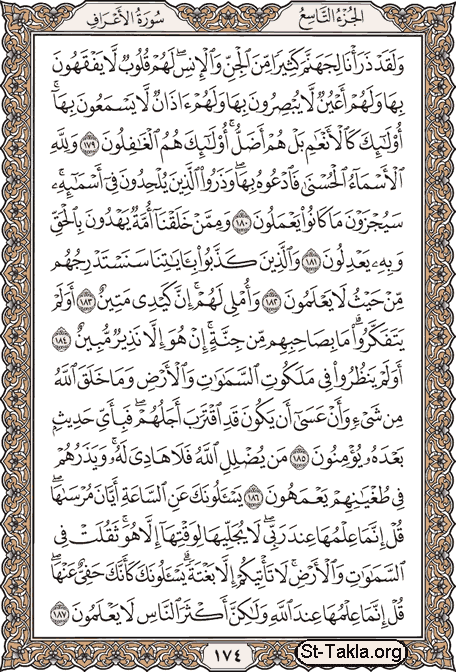 الجزء التاسع
سورة الأعراف
ولقد ذرأنا لجهنم كثيرا من الجن والإنس لهم قلوب لا يفقهون
بها ولهم أعين لا يبصرون بها ولهم ءاذان لا يسمعون بها
أولئك كالأنعم بل هم أضل أولئك هم الغفلون ١٧٩ ولله
الأسماء الحسنى فادعوه بها وذروا الذين يلحدون في أسمئه
سيجزون ما كانوا يعملون ١٨٠ وممن خلقنا أمة يهدون بالحق
وبه يعدلون ١٨١ والذين كذبوا بايتنا سنستدرجهم
من حيث لا يعلمون ١٨٢ وأملي لهم إن كيدي متين ١٨٣ أولم
يتفكروا ما بصاحبهم من جنة إن هو إلا نذير مبين ١٨٤
أولم ينظروا في ملكوت السموت والأرض وما خلق الله
من شيء وأن عسى أن يكون قد اقترب أجلهم فبأي حديث
بعده يؤمنون ١٨٥ من يضلل الله فلا هادي له ويذرهم
في طغينهم يعمهون ١٨٦ يسلونك عن الساعة أيان مرسها
قل إنما علمها عند ربي لا يجليها لوقتها إلا هو ثقلت في
السموت والأرض لا تأتيكم إلا بغتة يسلونك كأنك حفي عنها
قل إنما علمها عند الله ولكن أكثر الناس لا يعلمون ١٨٧
١٧٤
St-Takla.org